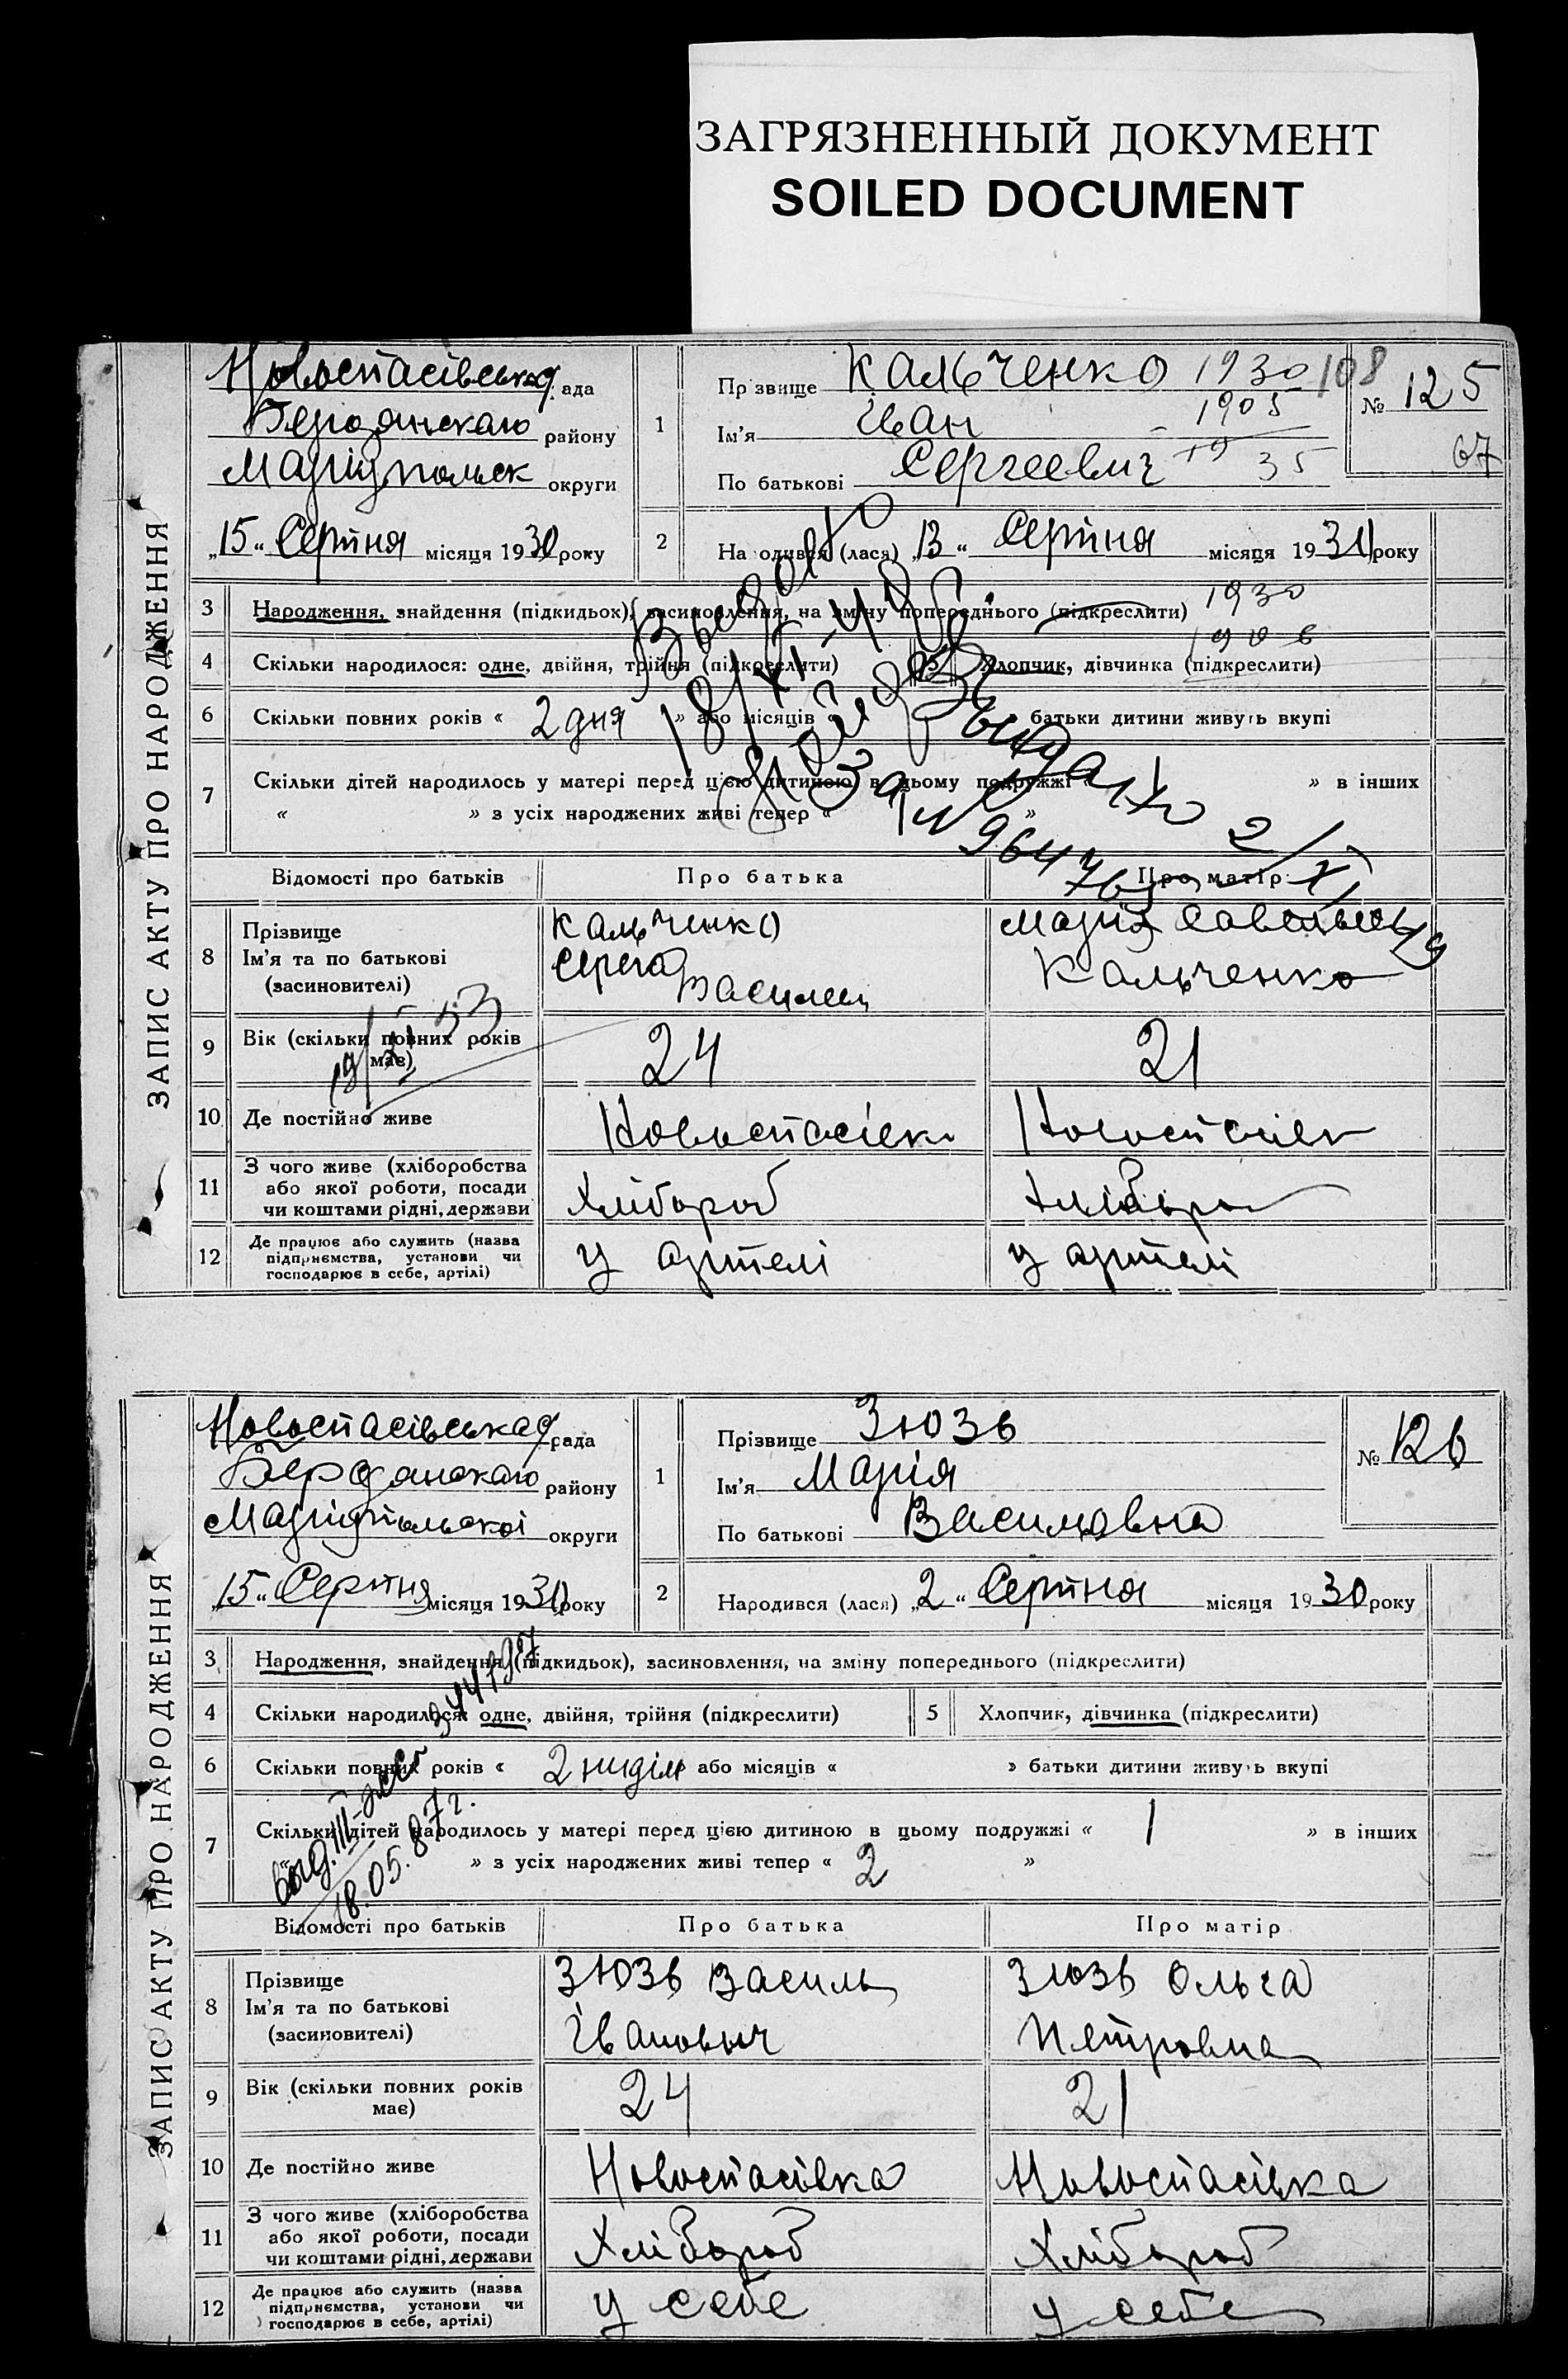 ЗАГРЯЗНЕННЫЙ ДОКУМЕНТ
SOILED DOCUMENT
ЗАПИС АКТУ ПРО НАРОДЖЕННЯ
Новоспасівська рада
Бердянскаго району
Маріупольск округи
„15“ Серпня місяця 1930 року
1
Прізвище Кальченко 1930 108
Ім'я Іван 1905
По батькові Сергеевич 19 35
№ 125
67
2
Народився (лася) „13“ Серпня місяця 1930 року
3 Народження, знайдення (підкидьок), засиновлення, на зміну попереднього (підкреслити) 1930
4 Скільки народилося: одне, двійня, трійня (підкреслити) 5 Хлопчик, дівчинка (підкреслити)
6 Скільки повних років « 2 дня » або місяців « батьки дитини живуть вкупі
7 Скільки дітей народилось у матері перед цією дитиною в цьому подружжі « » в інших
« » з усіх народжених живі тепер « »
Відомості про батьків Про батька Про матір
8 Прізвище
Ім'я та по батькові
(засиновителі)
Кальченко
Сергей
Василец
Мария Савельевн
Кальченко
9 Вік (скільки повних років має) 24 21
10 Де постійно живе Новоспасівк Новоспасівк
11 З чого живе (хліборобства
або якої роботи, посади
чи коштами рідні, держави
Хлібороб Хлібороб
12 Де працює або служить (назва
підприємства, установи чи
господарює в себе, артілі)
у артелі у артелі
Выдано
18/XI-49
Выдано 2/XI
за N 96476
19/XI 53
ЗАПИС АКТУ ПРО НАРОДЖЕННЯ
Новоспасівська рада
Бердянскаго району
Маріупольскоі округи
„15“ Серпня місяця 1930 року
1
Прізвище Зюзь
Ім'я Марія
По батькові Василовна
№ 126
2
Народився (лася) „2“ Серпня місяця 1930 року
3 Народження, знайдення (підкидьок), засиновлення, на зміну попереднього (підкреслити)
4 Скільки народилося: одне, двійня, трійня (підкреслити) 5 Хлопчик, дівчинка (підкреслити)
6 Скільки повних років « 2 нидiлi або місяців « » батьки дитини живуть вкупі
7 Скільки дітей народилось у матері перед цією дитиною в цьому подружжі « 1 » в інших
« » з усіх народжених живі тепер « 2 »
выд. III-жс 344797
18.05.87г.
Відомості про батьків Про батька Про матір
8 Прізвище
Ім'я та по батькові
(засиновителі)
Зюзь Василь
Івановыч
Зюзь Ольга
Петровна
9 Вік (скільки повних років має) 24 21
10 Де постійно живе Новоспасівка Новоспасівка
11 З чого живе (хліборобства
або якої роботи, посади
чи коштами рідні, держави
Хлібороб Хлібороб
12 Де працює або служить (назва
підприємства, установи чи
господарює в себе, артілі)
у себе у себе